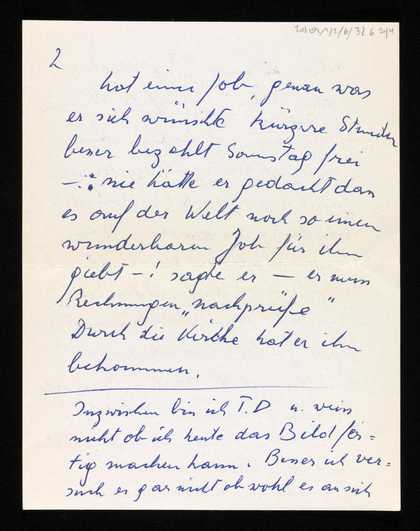 2
hat einen Job, genau was
er sich wünschte kürzere Stunden
besser bezahlt Samstag frei
– : nie hätte er gedacht dan
es auf der Welt noch so einen
wunderbaren Job für ihn
giebt – ! sagte er – er muss
Rechnungen „nachprüfe"
Durch die Kirche hat er ihn
bekommen.
Inzwischen bin ich T.D u. weiss
nicht ob ich heute das Bild fer-
tig machen kann. Besser ich ver-
such es gar nicht obwohl es an sich